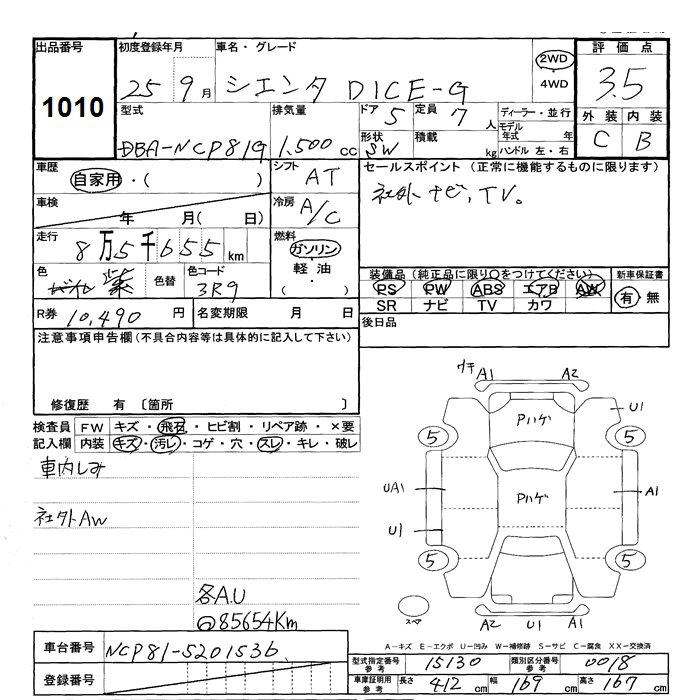 出品番号 初度登録年月 車名・グレード 評価点
1010 25年9月 シエンタ DICE-G 2WD・4WD 3.5
型式 排気量 ドア 5 定員 7人 ディーラー・並行 外装 内装
DBA-NCP81G 1,500cc 形状 SW 積載 kg モデル年式 年 ハンドル 左・右 C B
車歴 自家用・( ) シフト AT セールスポイント(正常に機能するものに限ります)
車検 年 月( 日) 冷房 A/C 社外ナビ、TV。
走行 8万5千655km 燃料 ガソリン・軽油・( )
色 紫 色替 色コード 3R9 装備品(純正品に限り○をつけてください) 新車保証書
PS PW ABS エアB AW 有・無
SR ナビ TV カワ
R券 10,490円 名変期限 月 日 後日品
注意事項申告欄(不具合内容等は具体的に記入して下さい)
修復歴 有 〔箇所 〕
検査員 FW キズ・飛石・ヒビ割・リペア跡・×要
記入欄 内装 キズ・汚レ・コゲ・穴・スレ・キレ・破レ
車内しみ
社外AW
各A.U
85654Km
ウキ A1 A2
Pハゲ U1
5 5
UA1 Pハゲ A1
U1
5 5
スペア A2 U1 A1
A-キズ E-エクボ U-凹み W-補修跡 S-サビ C-腐食 XX-交換済
車台番号 NCP81-5201536
登録番号
型式指定番号 参考 15130 類別区分番号 参考 0018
車庫証明用 参考 長さ 412cm 幅 169cm 高さ 167cm